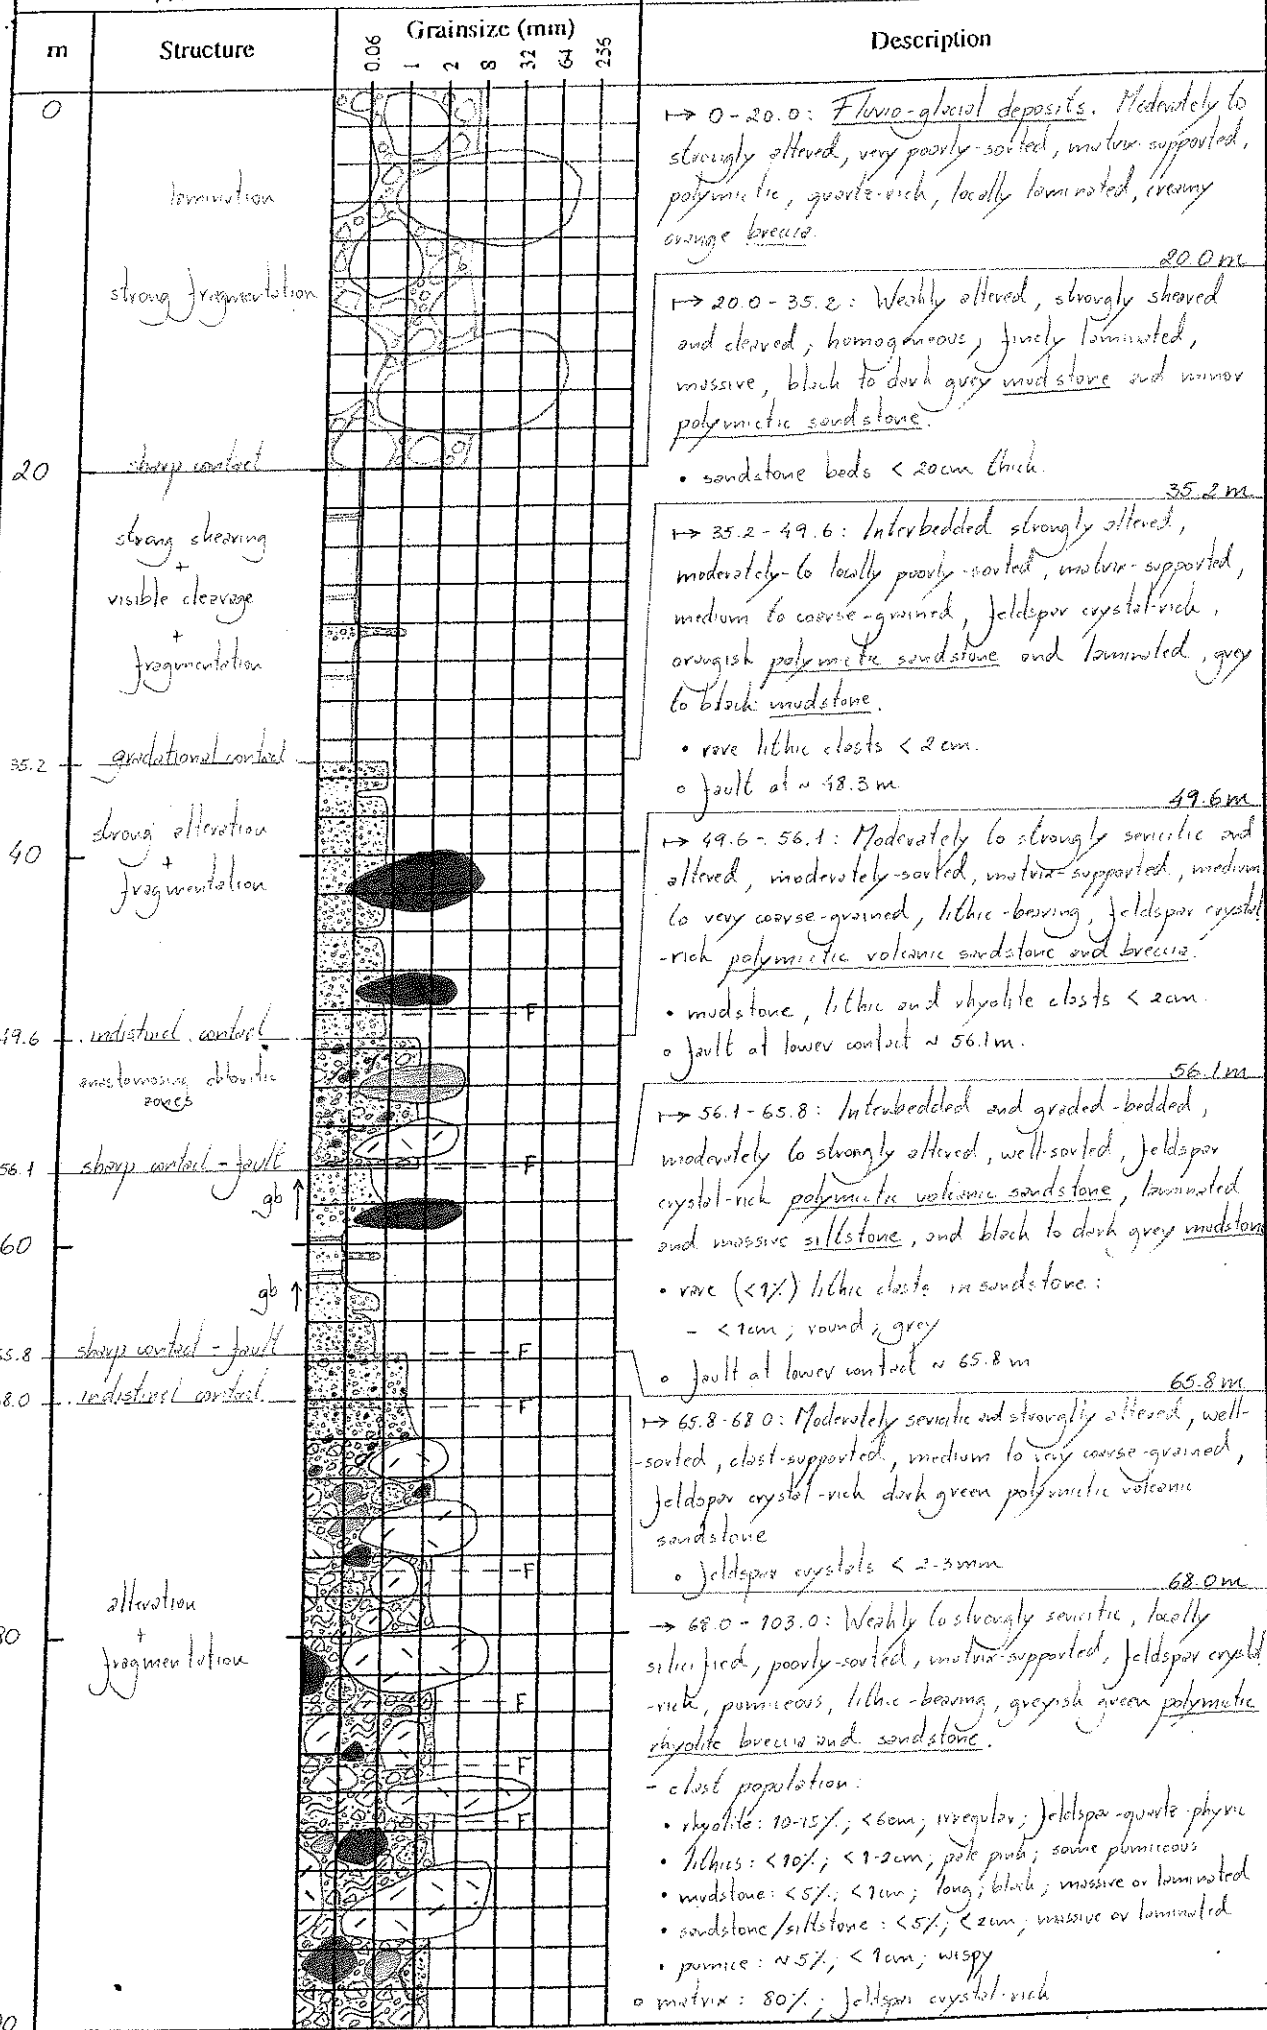 m
Structure
Grainsize (mm)
0.06
1
2
8
32
64
256
Description
0
lamination
strong fragmentation
sharp contact
20
strong shearing
+
visible cleavage
+
fragmentation
35.2
gradational contact
strong alteration
40
+
fragmentation
F
49.6
indistinct contact
anastomosing chloritic
zones
56.1
sharp contact - fault
F
gb
60
gb
65.8
sharp contact - fault
F
68.0
indistinct contact
F
F
alteration
80
+
fragmentation
F
F
F
↦ 0-20.0: Fluvio-glacial deposits. Moderately to
strongly altered, very poorly-sorted, matrix-supported,
polymictic, quartz-rich, locally laminated, creamy
orange breccia.
20.0 m
↦ 20.0 - 35.2: Weakly altered, strongly sheared
and cleaved, homogeneous, finely laminated,
massive, black to dark grey mudstone and minor
polymictic sandstone.
• sandstone beds < 20cm thick.
35.2 m
↦ 35.2 - 49.6: Interbedded strongly altered,
moderately-to locally poorly-sorted, matrix-supported,
medium to coarse-grained, feldspar crystal-rich,
orangish polymictic sandstone and laminated, grey
to black mudstone.
• rare lithic clasts < 2cm.
o fault at ~ 48.3 m
49.6 m
↦ 49.6 - 56.1: Moderately to strongly sericitic and
altered, moderately-sorted, matrix-supported, medium
to very coarse-grained, lithic-bearing, feldspar crystal
-rich polymictic volcanic sandstone and breccia.
• mudstone, lithic and rhyolite clasts < 2cm.
o fault at lower contact ~ 56.1m.
56.1 m
↦ 56.1 - 65.8: Interbedded and graded-bedded,
moderately to strongly altered, well-sorted, feldspar
crystal-rich polymictic volcanic sandstone, laminated
and massive siltstone, and black to dark grey mudstone
• rare (<1%) lithic clasts in sandstone:
- <1cm; round; grey
o fault at lower contact ~ 65.8 m
65.8 m
↦ 65.8-68.0: Moderately sericitic and strongly altered, well-
-sorted, clast-supported, medium to very coarse-grained,
feldspar crystal-rich dark green polymictic volcanic
sandstone
o feldspar crystals < 2-3mm
68.0 m
→ 68.0 - 103.0: Weakly to strongly sericitic, locally
silicified, poorly-sorted, matrix-supported, feldspar crystal
-rich, pumiceous, lithic-bearing, greyish green polymictic
rhyolite breccia and sandstone.
- clast population:
• rhyolite: 10-15%; <6cm; irregular; feldspar-quartz-phyric
• lithics: <10%; <1-2cm; pale pink; some pumiceous
• mudstone: <5%; <1cm; long; black; massive or laminated
• sandstone/siltstone: <5%; <2cm; massive or laminated
• pumice: ~5%; < 1cm; wispy
o matrix: 80%; feldspar crystal-rich